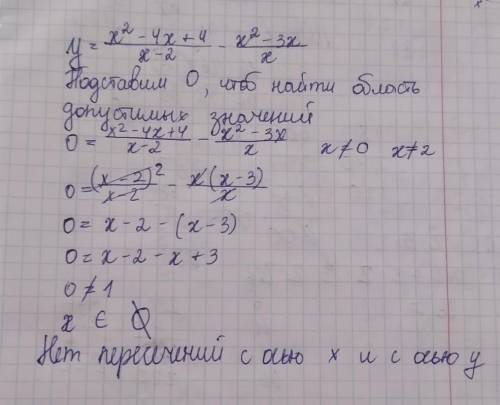 y = x² - 4x + 4 / x - 2 - x² - 3x / x
Подставим 0, чтоб найти область
допустимых значений
0 = x² - 4x + 4 / x - 2 - x² - 3x / x x ≠ 0 x ≠ 2
0 = (x - 2)² / x - 2 - x(x - 3) / x
0 = x - 2 - (x - 3)
0 = x - 2 - x + 3
0 ≠ 1
x ∈ ∅
Нет пересечений с осью x и с осью y